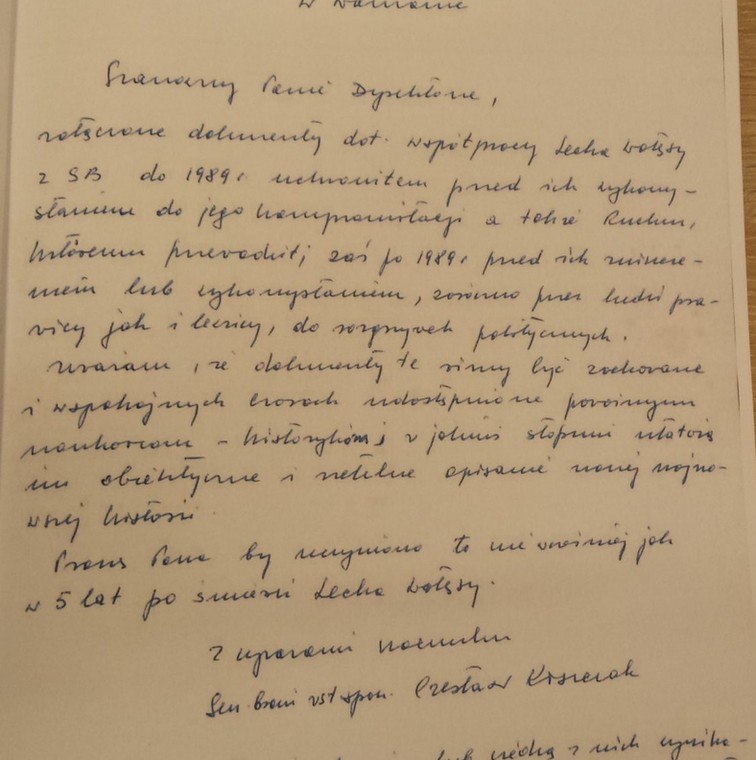 w Warszawie
Szanowny Panie Dyrektorze,
załączone dokumenty dot. współpracy Lecha Wałęsy
z SB do 1989 r uchroniłem przed ich wykorzy-
staniem do jego kompromitacji a także Ruchu,
któremu przewodził; zaś po 1989 r przed ich zniszcze-
niem lub wykorzystaniem, zarówno przez ludzi pra-
wicy jak i lewicy, do rozgrywek politycznych.
Uważam, że dokumenty te winny być zachowane
i w spokojnych czasach udostępnione poważnym
naukowcom - historykom i w jakimś stopniu ułatwią
im obiektywne i rzetelne opisanie naszej najno-
wszej historii.
Proszę Pana by uczyniono to nie wcześniej jak
w 5 lat po śmierci Lecha Wałęsy.
Z wyrazami szacunku
Gen. broni w st. spocz. Czesław Kiszczak
lub z nich wynika-